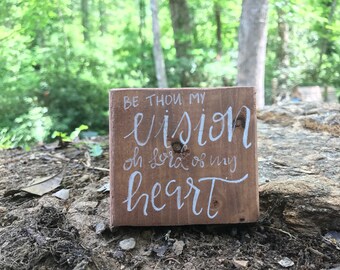 BE THOU MY
vision
oh lord of my
heart